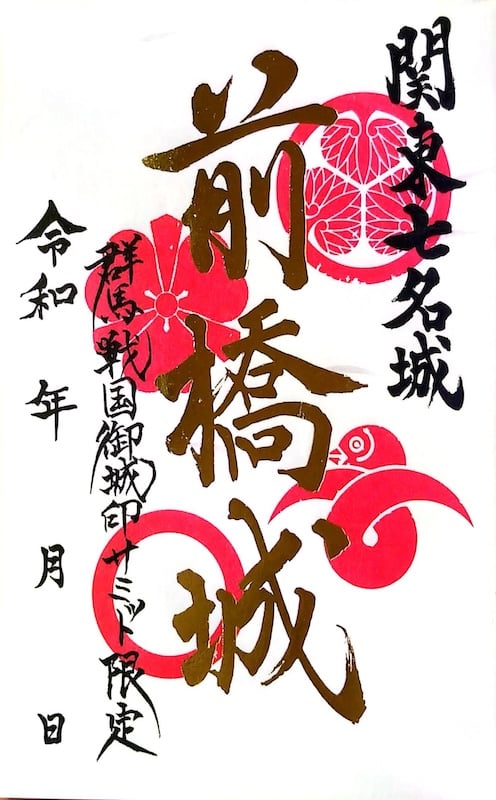 関東七名城
前橋城
群馬戦国御城印サミット限定
令和 年 月 日